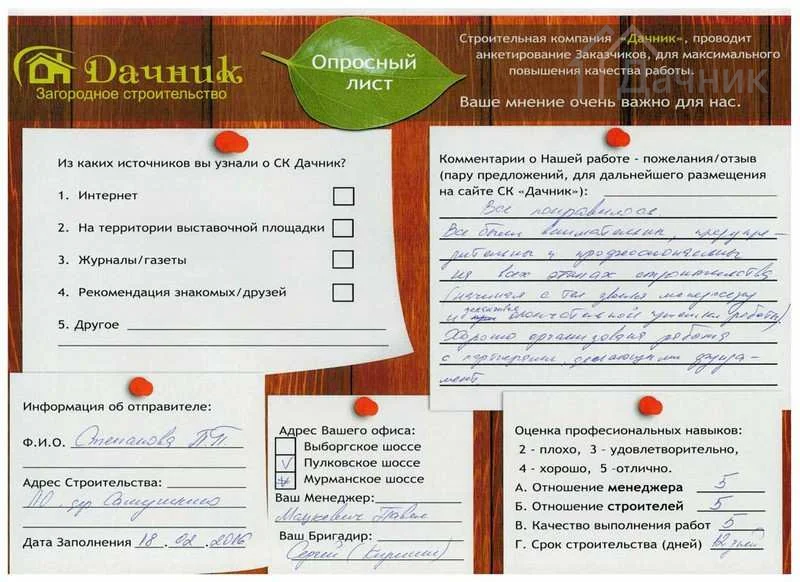 Дачник
Загородное строительство
Опросный
лист
Строительная компания «Дачник», проводит
анкетирование Заказчиков, для максимального
повышения качества работы.
Ваше мнение очень важно для нас.
Дачник
Из каких источников вы узнали о СК Дачник?
1. Интернет
2. На территории выставочной площадки
3. Журналы/газеты
4. Рекомендация знакомых/друзей
5. Другое
Комментарии о Нашей работе - пожелания/отзыв
(пару предложений, для дальнейшего размещения
на сайте СК «Дачник»):
Все понравилось
Все были внимательны, предупре-
дительны и профессиональны
на всех этапах строительства
(начиная с тел звонка менеджеру
и окончательной работы)
Хорошо организована работа
с партнерами, делающими фунда-
мент
Информация об отправителе:
Ф.И.О. Степанова П.П.
Адрес Строительства:
ЛО, дер
Дата Заполнения 18 . 02 . 2016
Адрес Вашего офиса:
Выборгское шоссе
V Пулковское шоссе
Мурманское шоссе
Ваш Менеджер:
Мацкевич Павел
Ваш Бригадир:
Сергей (Кириши)
Оценка профессиональных навыков:
2 - плохо, 3 - удовлетворительно,
4 - хорошо, 5 -отлично.
А. Отношение менеджера 5
Б. Отношение строителей 5
В. Качество выполнения работ 5
Г. Срок строительства (дней) 12 дней